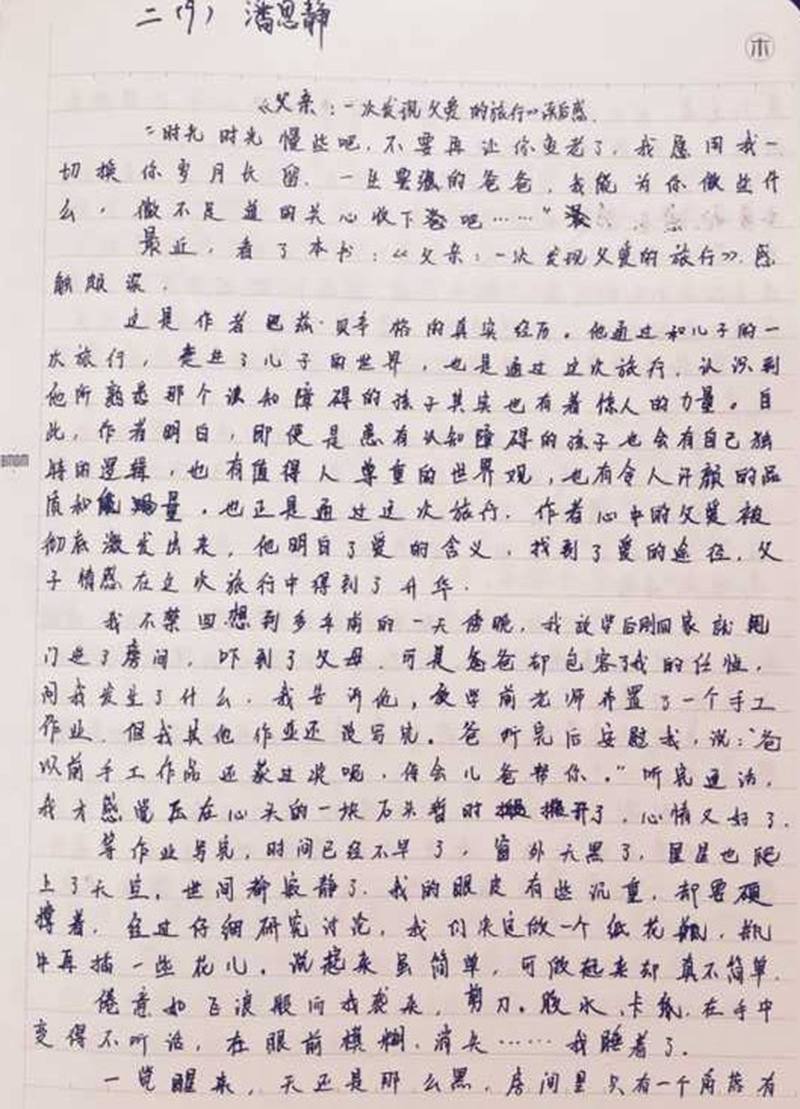 二(9) 潘思静
木
《父亲:一次发现父爱的旅行》读后感.
"时光时光慢些吧,不要再让你变老了,我愿用我一
切换你岁月长留.一生要强的爸爸,我能为你做些什
么,微不足道的关心收下吧……"
最近,看了本书:《父亲:一次发现父爱的旅行》.感
触颇深.
这是作者巴兹·贝辛格的真实经历。他通过和儿子的一
次旅行,走进了儿子的世界,也是通过这次旅行,认识到
他所熟悉那个认知障碍的孩子其实也有着惊人的力量。自
此,作者明白,即使是患有认知障碍的孩子也会有自己独
特的逻辑,也有值得人尊重的世界观,也有令人汗颜的品
质和能量,也正是通过这次旅行,作者心中的父爱被
彻底激发出来,他明白了爱的含义,找到了爱的途径,父
子情感在这次旅行中得到了升华.
我不禁回想到多年前的一天傍晚,我放学后刚回家就甩
门进了房间,吓到了父母.可是爸爸却包容了我的任性,
问我发生了什么.我告诉他,放学前老师布置了一个手工
作业.但我其他作业还没写完。爸听完后安慰我,说:"爸
以前手工作品还获过奖呢,待会儿爸帮你。"听完这话,
我才感觉压在心头的一块石头暂时搬开了,心情又好了.
等作业写完,时间已经不早了,窗外天黑了,星星也爬
上了天空.世间都寂静了.我的眼皮有些沉重,却要硬
撑着.经过仔细研究讨论,我们决定做一个纸花瓶,瓶
中再插一些花儿。说起来虽简单,可做起来却真不简单.
倦意如飞浪般向我袭来,剪刀.胶水、卡纸.在手中
变得不听话,在眼前模糊.消失……我睡着了.
一觉醒来,天还是那么黑,房间里只有一个角落有